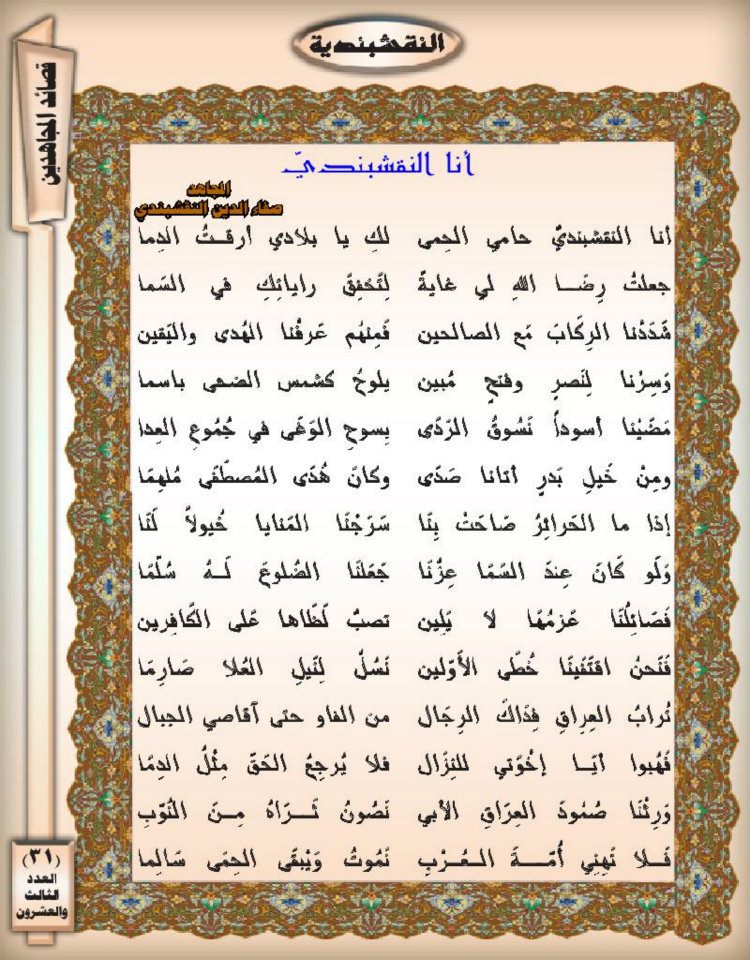 النقشبندية
قصائد المجاهدين
أنا النقشبنديّ
المجاهد
صفاء الدين النقشبندي
أنا النقشبنديُّ حامي الحِمى لكِ يا بلادي أرقتُ الدِما
جعلتُ رِضَا اللهِ لي غايةً لِتَخفِقَ راياتِكِ في السَما
شَدَدْنا الرِكَابَ مَع الصالحين فَمِنهُم عَرفْنا الهُدى واليَقين
وَسِرْنا لِنَصرٍ وفتحٍ مُبين يلوحُ كشمس الضحى باسما
مَضَيْنا أسوداً نَسُوقُ الرَدَى بِسوحِ الوَغَى في جُمُوعِ العِدا
ومِنْ خَيلِ بَدرٍ أتانا صَدَى وكانَ هُدَى المُصطَفَى مُلهِمَا
إذا ما الحَرائِرُ صَاحَتْ بِنَا سَرَجْنَا المَنايا خُيولاً لَنَا
وَلَو كَانَ عِندَ السَمَا عِزُنَا جَعَلنَا الضُلوعَ لَهُ سُلّمَا
فَصَائِلُنَا عَزمُهَا لا يَلِين تصبُّ لَظَاها عَلى الكَافِرين
فَنَحنُ اقتَفَينَا خُطَى الأَوّلين نَسُلُّ لِنَيلِ العُلا صَارِمَا
تُرابُ العِراقِ فِدَاكَ الرِجَال من الفاو حتى آقاصي الجبال
فَهُبوا أيَا إخْوَتي للنِزَال فلا يُرجِعُ الحَقَّ مِثْلُ الدِمَا
وَرِثْنَا صُمُودَ العِرَاقِ الأبي نَصُونُ ثَرَاهُ مِنَ النُوَبِ
فَلا تَهِنِي أُمَّةَ العُرْبِ نَمُوتُ وَيَبْقَى الحِمَى سَالِما
(٣١)
العدد
الثالث
والعشرون